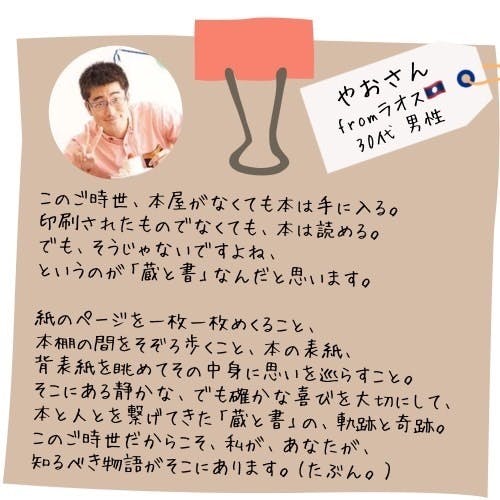 やおさん
fromラオス
30代 男性
このご時世、本屋がなくても本は手に入る。
印刷されたものでなくても、本は読める。
でも、そうじゃないですよね、
というのが「蔵と書」なんだと思います。
紙のページを一枚一枚めくること、
本棚の間をそぞろ歩くこと、本の表紙、
背表紙を眺めてその中身に思いを巡らすこと。
そこにある静かな、でも確かな喜びを大切にして、
本と人とを繋げてきた「蔵と書」の、軌跡と奇跡。
このご時世だからこそ、私が、あなたが、
知るべき物語がそこにあります。(たぶん。)